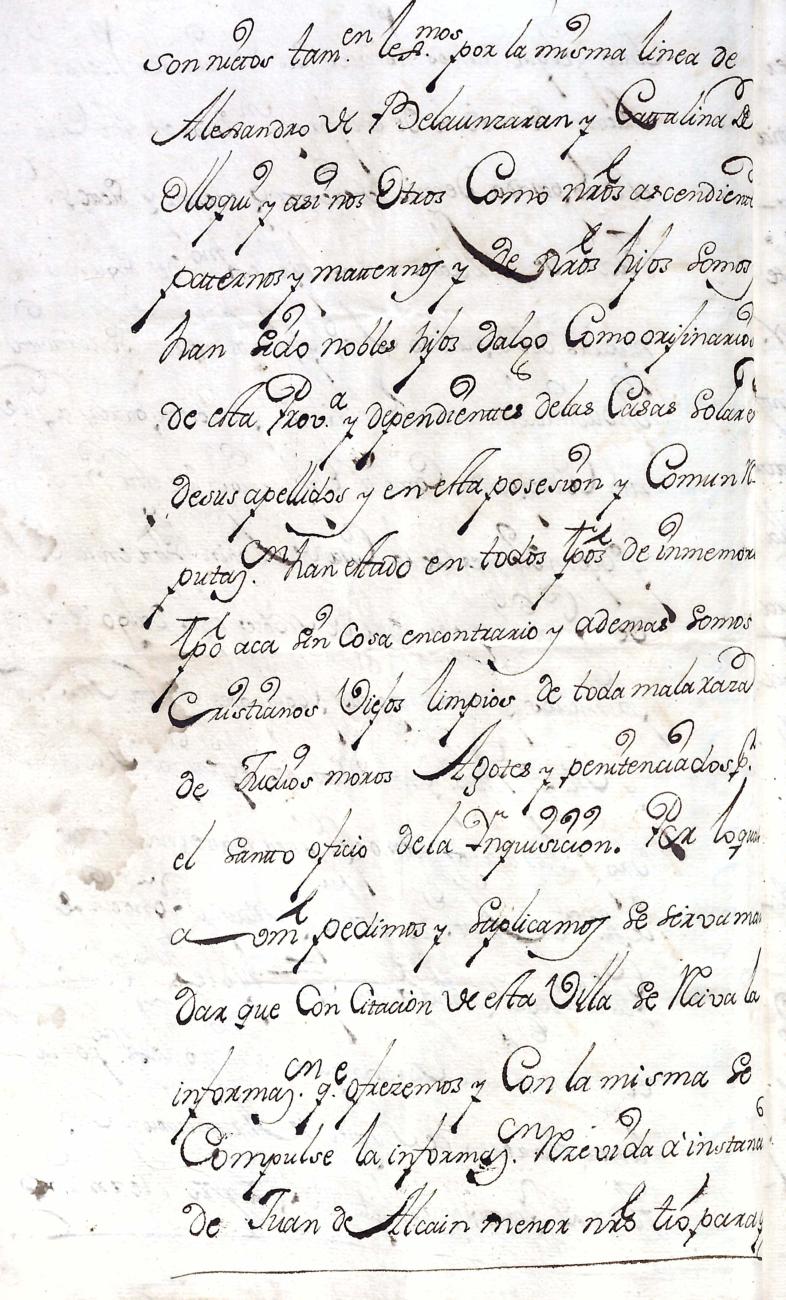 son nietos tam.en lexmos por la misma linea de
Alexandro de Belaunzaran y Catalina de
Olloqui y asi nos Otros Como nrôs ascendient
paternos y maternos y de nrôs hijos somos
han sido nobles hijos dalgo Como orijinarios
de esta Prov.a y dependientes de las Casas solares
de sus apellidos y en esta posesion y Comun R.
putaz.on han estado en todos tpôs de inmemori
tpô aca sin Cosa en contrario y ademas somos
Cristianos Viejos limpios de toda mala raza
de Judios moros Agotes y penitenciados p.r
el santo oficio de la Inquisicion. Por lo qual
a vm̂ pedimos y suplicamos se sirva man
dar que Con Citacion de esta Villa se Reciva la
informaz.on q.e ofrezemos y Con la misma se
Compulse la informaz.on Rrevida a instanc
de Juan de Alcain menor nrô tio, para q